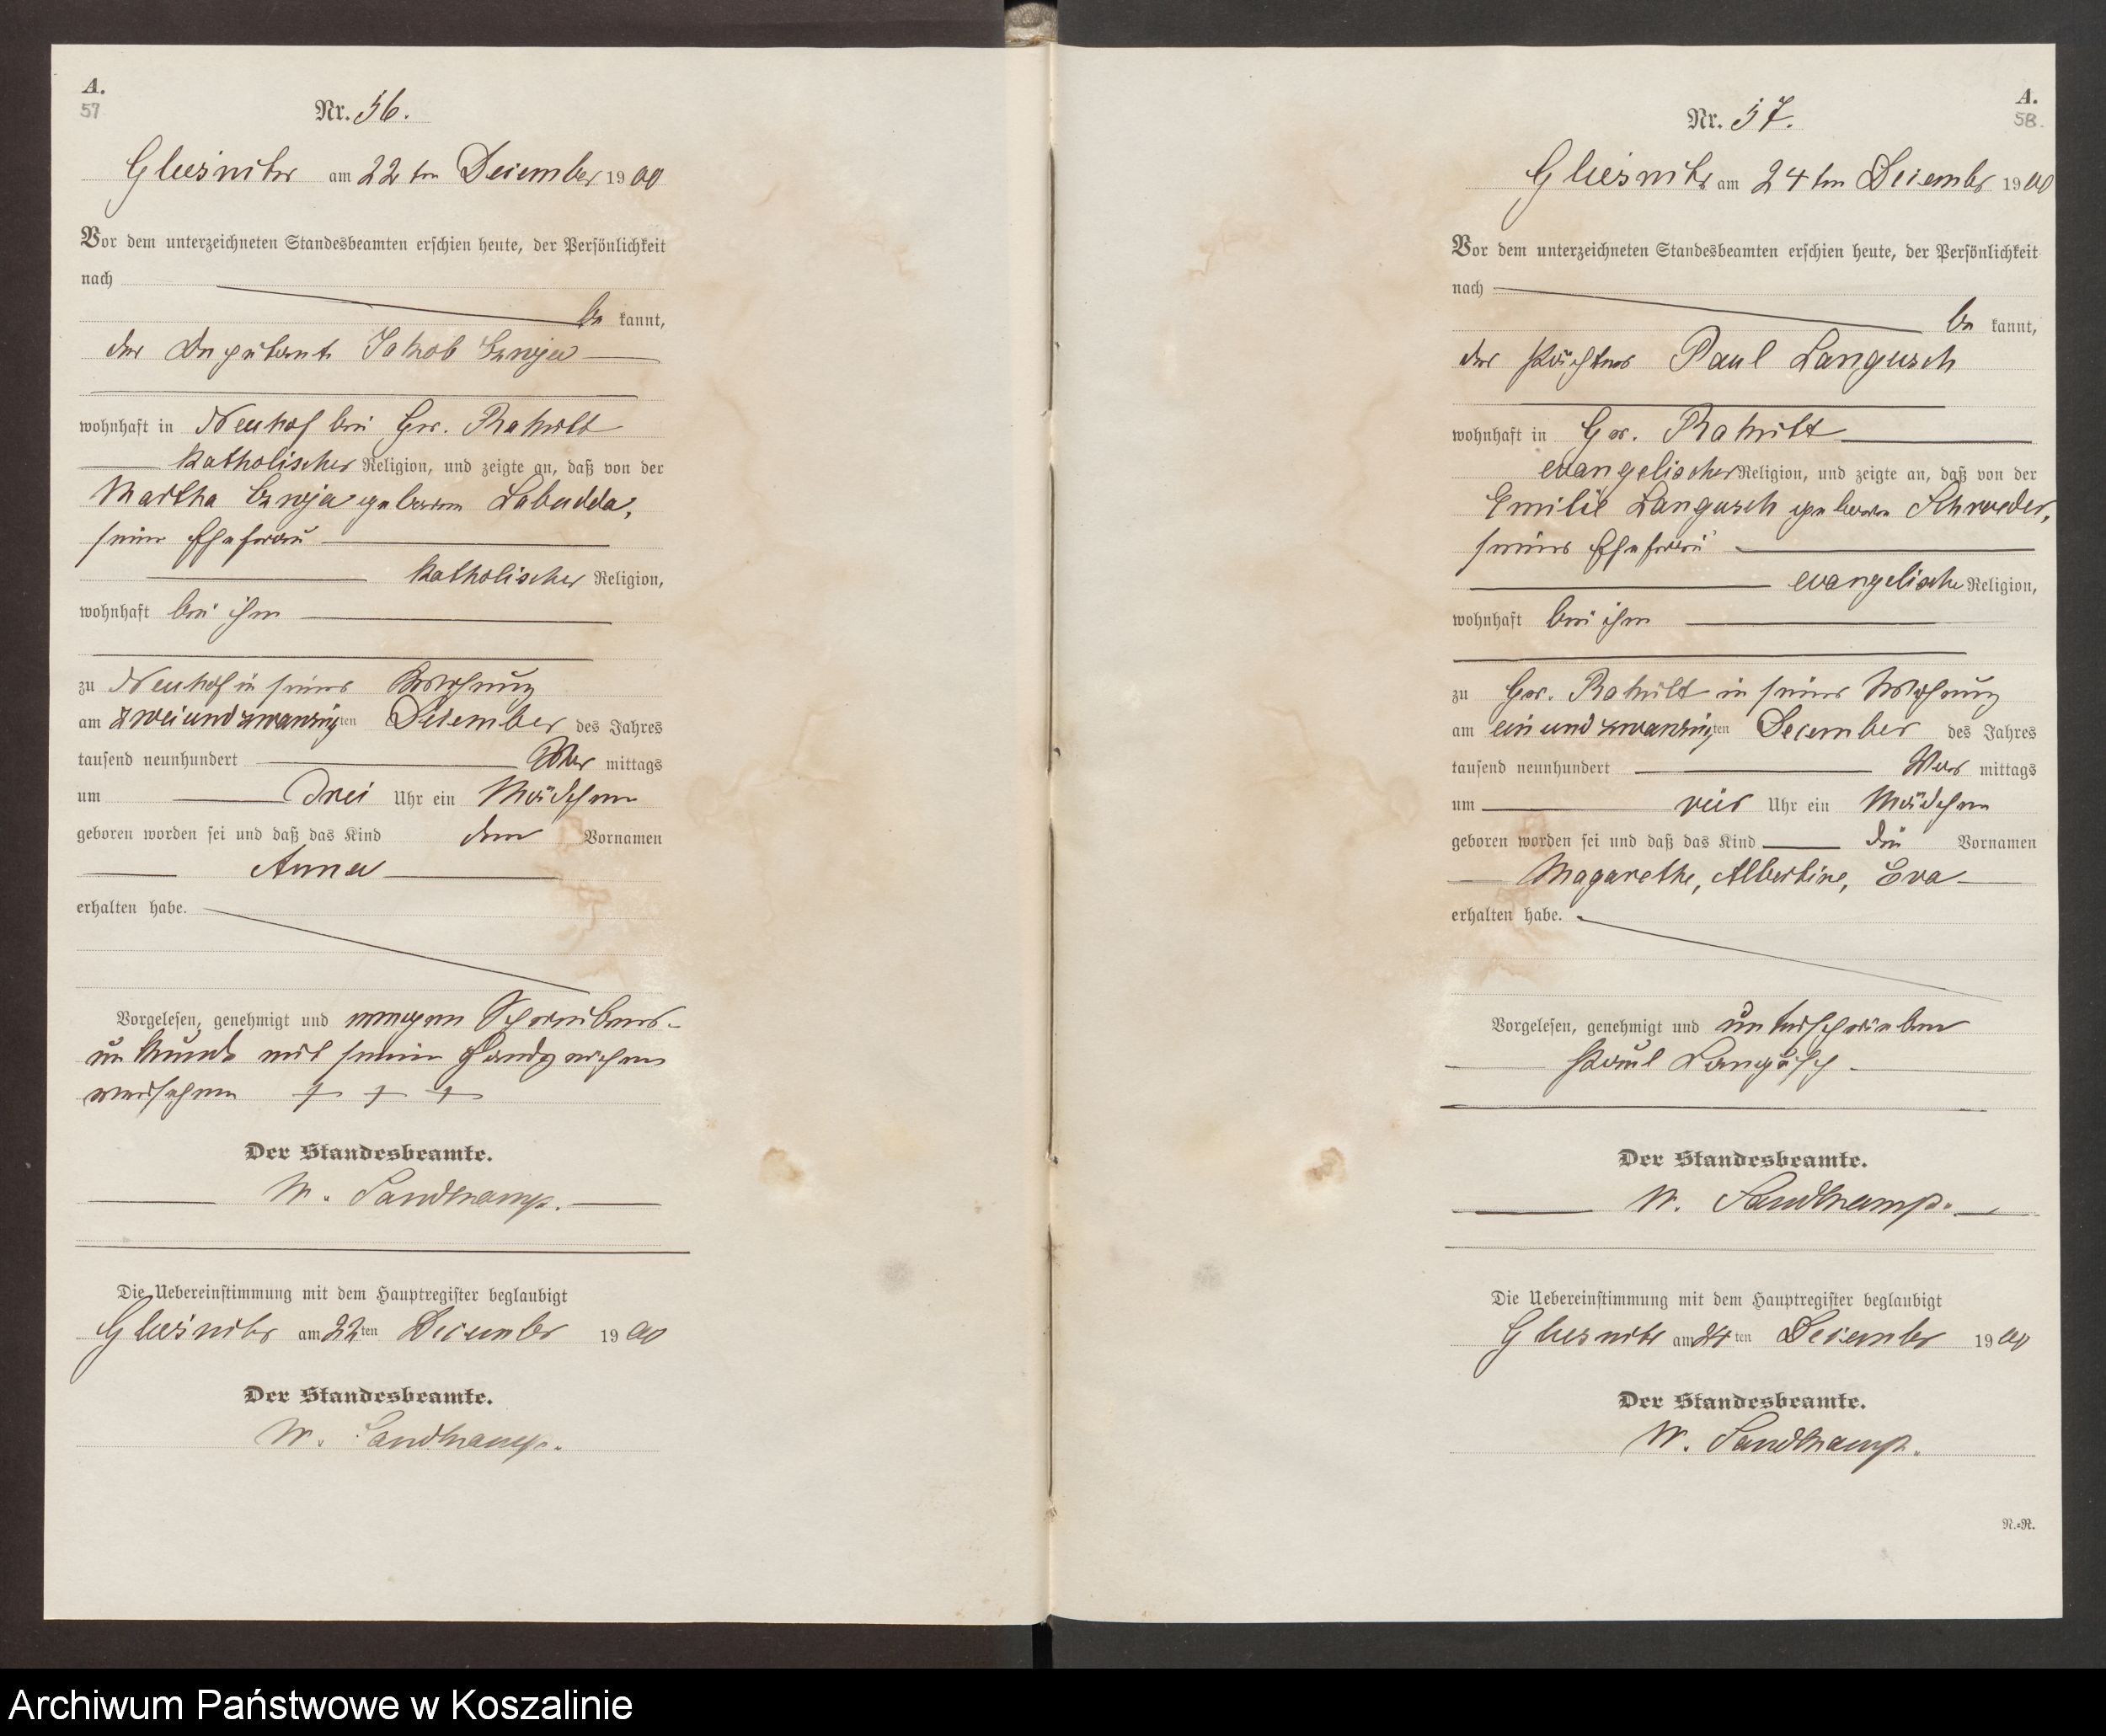 A.
57
Nr. 56.
Gliesnitz am 22ten December 1900
Vor dem unterzeichneten Standesbeamten erschien heute, der Persönlichkeit
nach
be kannt,
der Deputant Jakob
wohnhaft in Neuhof bei Gr. Rakitt
katholischer Religion, und zeigte an, daß von der
Martha geborene Labudda,
seiner Ehefrau
katholischer Religion,
wohnhaft bei ihm
zu Neuhof in seiner Wohnung
am zweiundzwanzigten December des Jahres
tausend neunhundert Vor mittags
um drei Uhr ein Mädchen
geboren worden sei und daß das Kind den Vornamen
Anna
erhalten habe.
Vorgelesen, genehmigt und wegen Schreibens-
unkunde mit seinen Handzeichen
versehen + + +
Der Standesbeamte.
W. Sandkamp.
Die Uebereinstimmung mit dem Hauptregister beglaubigt
Gliesnitz am 22ten December 1900
Der Standesbeamte.
W. Sandkamp.
A.
58.
Nr. 57.
Gliesnitz am 24ten December 1900
Vor dem unterzeichneten Standesbeamten erschien heute, der Persönlichkeit
nach
be kannt,
der Pächter Paul Langusch
wohnhaft in Gr. Rakitt
evangelischer Religion, und zeigte an, daß von der
Emilie Langusch geborene Schroeder,
seiner Ehefrau
evangelische Religion,
wohnhaft bei ihm
zu Gr. Rakitt in seiner Wohnung
am einundzwanzigten December des Jahres
tausend neunhundert Vor mittags
um vier Uhr ein Mädchen
geboren worden sei und daß das Kind die Vornamen
Magarethe, Albertine, Eva
erhalten habe.
Vorgelesen, genehmigt und unterschrieben
Paul Langusch
Der Standesbeamte.
W. Sandkamp.
Die Uebereinstimmung mit dem Hauptregister beglaubigt
Gliesnitz am 24ten December 1900
Der Standesbeamte.
W. Sandkamp.
N.=R.
Archiwum Państwowe w Koszalinie